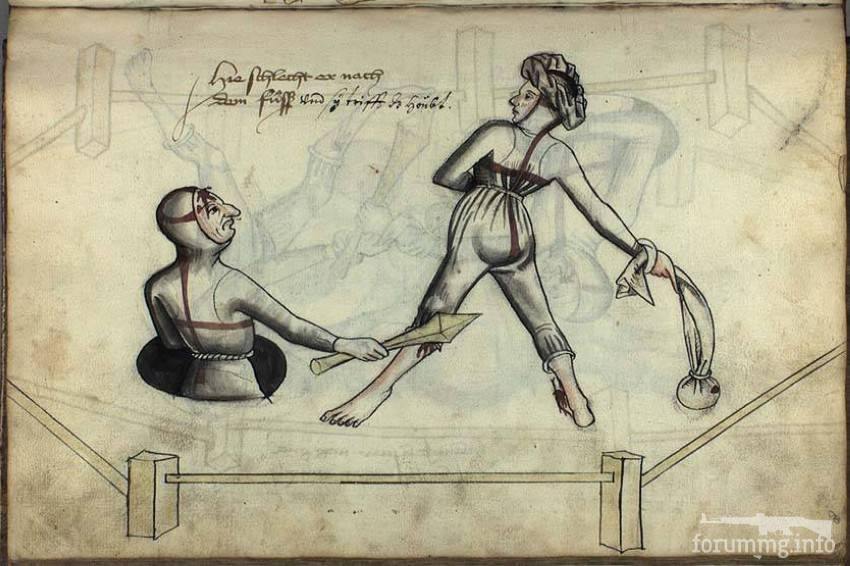 Hie schlecht er nach
dem fuß und sy trifft dz höubt.
forummg.info